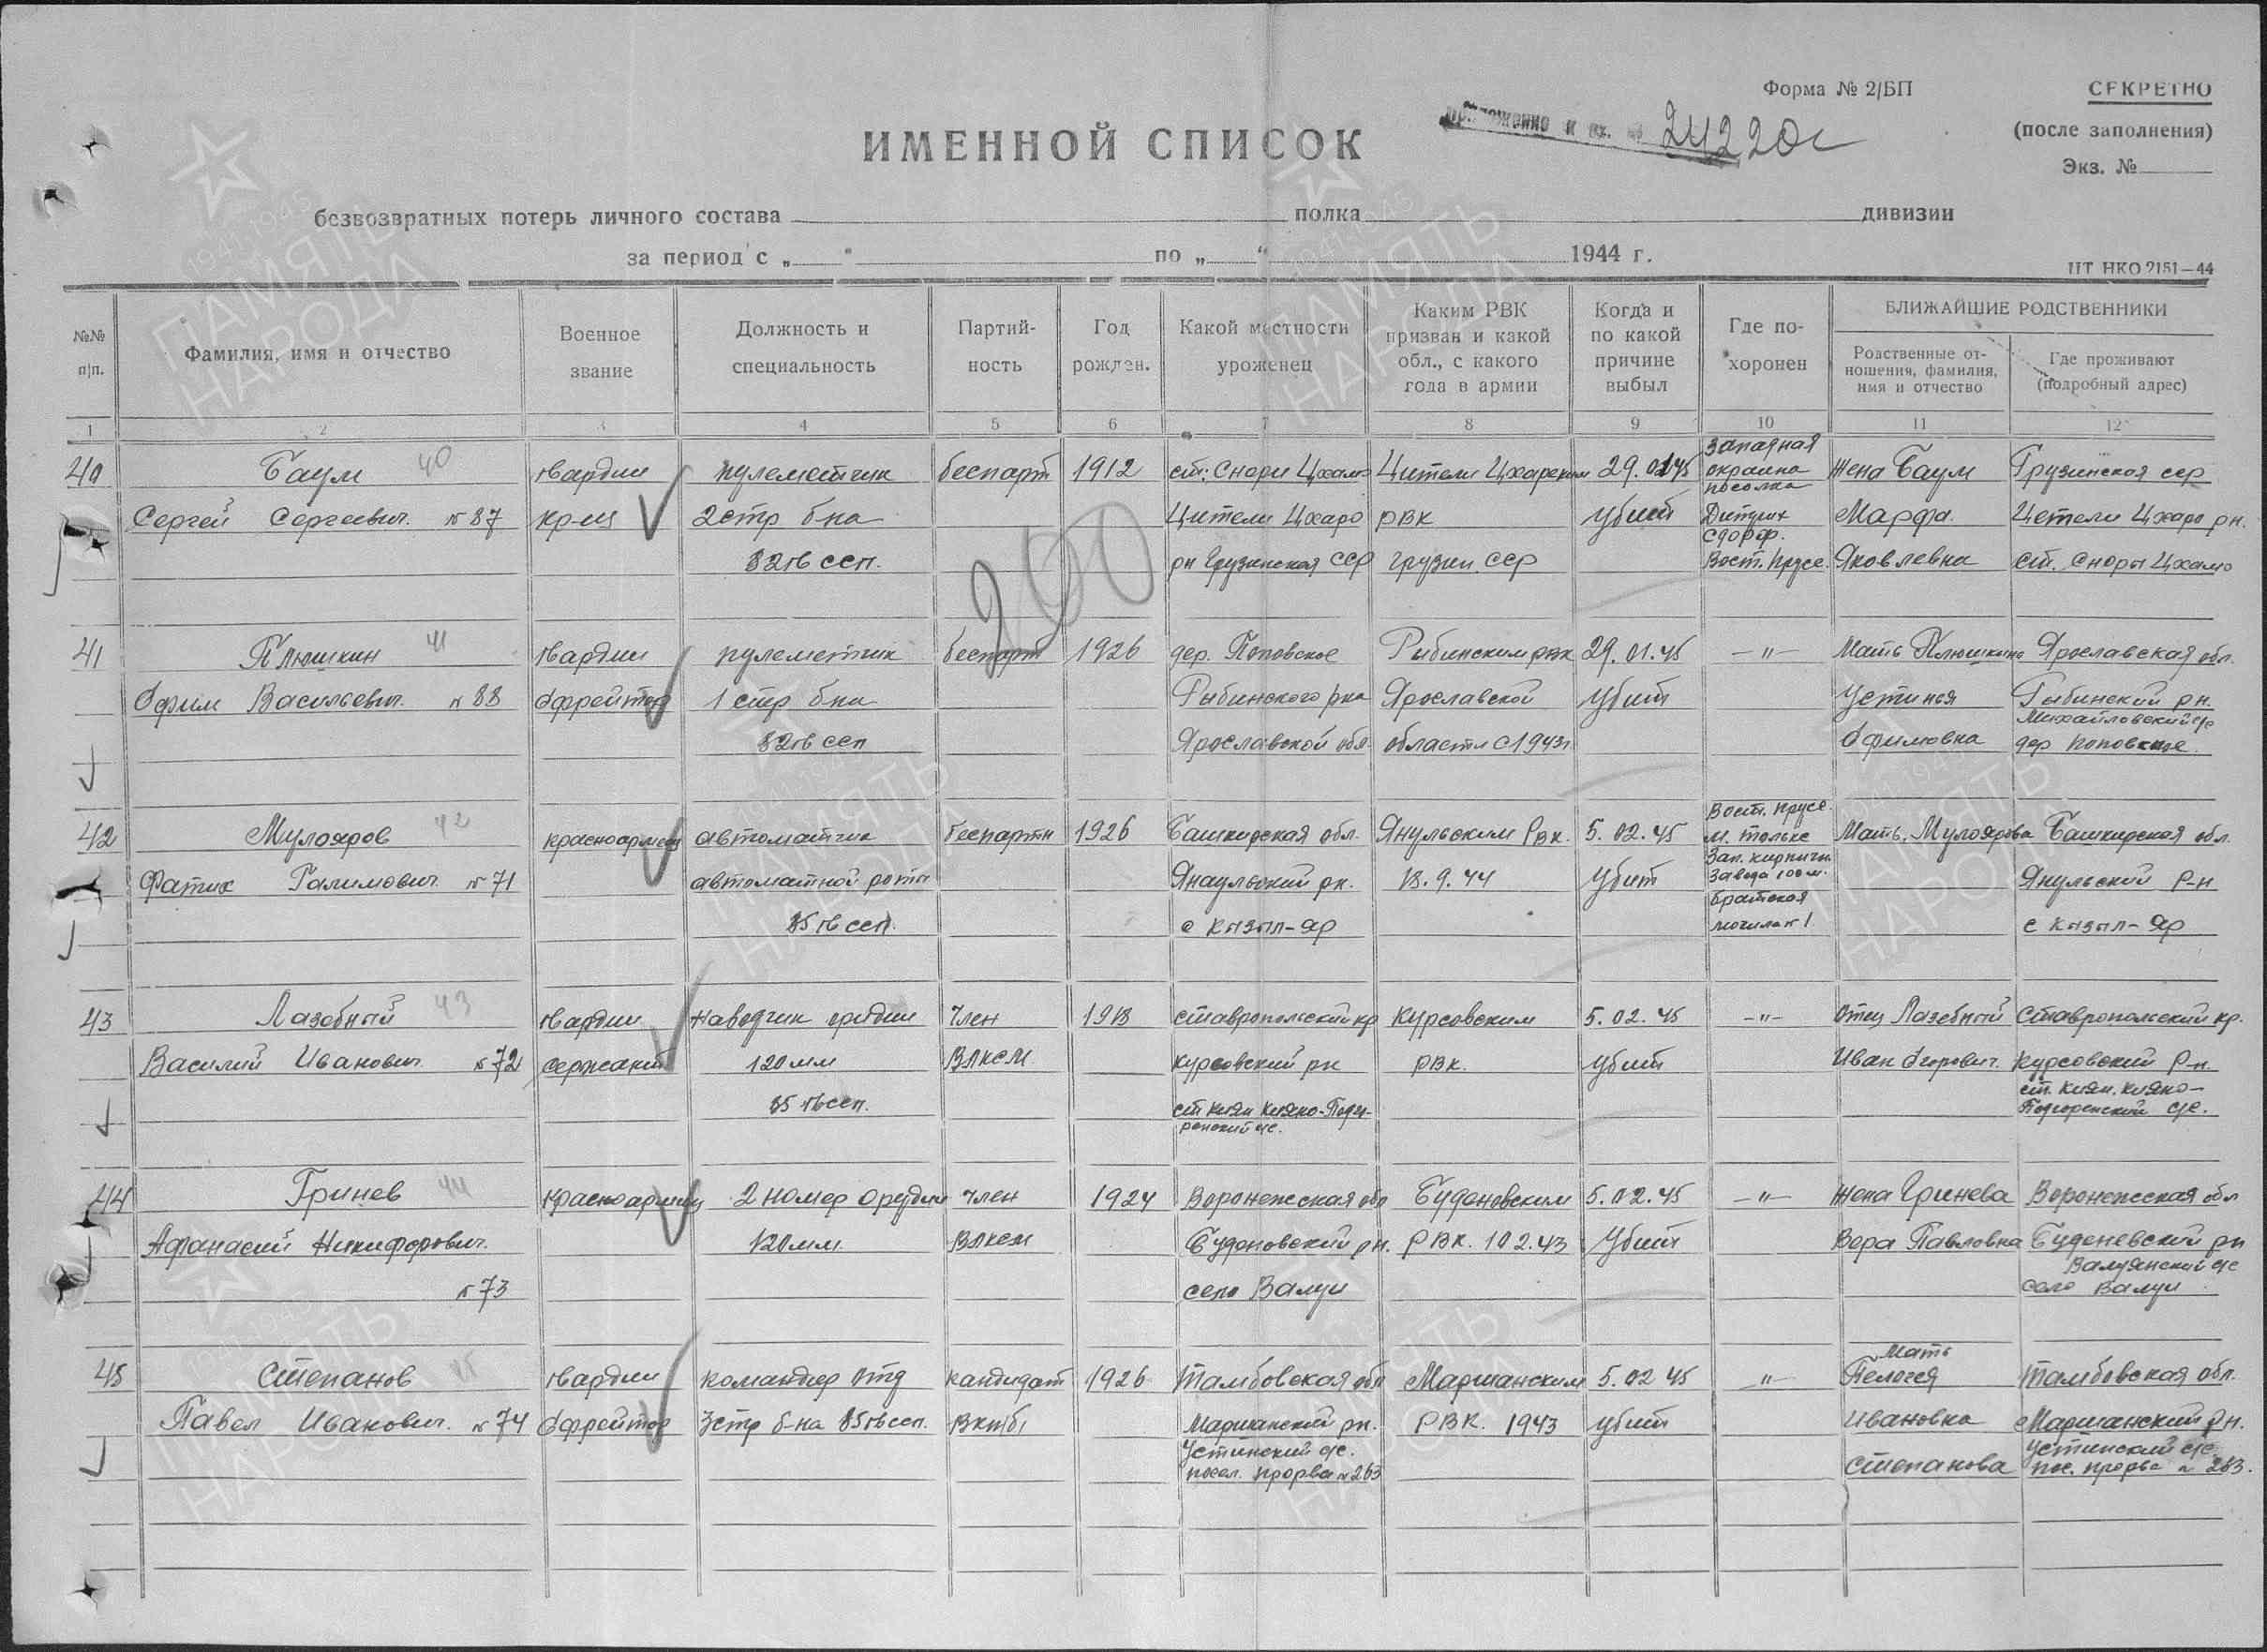 Форма № 2/БП
СЕКРЕТНО
(после заполнения)
Экз. №
Приложение к вх. № 24220с
ИМЕННОЙ СПИСОК
безвозвратных потерь личного состава полка дивизии
за период с „ “ по „ “ 1944 г.
ПТ НКО 2151—44
№№ п|п.
Фамилия, имя и отчество
Военное звание
Должность и специальность
Партий-
ность
Год рожден.
Какой местности уроженец
Каким РВК призван и какой обл., с какого года в армии
Когда и по какой причине выбыл
Где по-
хоронен
БЛИЖАЙШИЕ РОДСТВЕННИКИ
Родственные от-
ношения, фамилия, имя и отчество
Где проживают (подробный адрес)
1 2 3 4 5 6 7 8 9 10 11 12
200
40 Баум 40 гвардии пулеметчик беспарт 1912 ст: Снори Цхамо Цители Цхарским 29.01.45 Западная окраина поселка Жена Баум Грузинская сср
Сергей Сергеевич. №87 кр-ец 2 стр б-на Цители Цхаро РВК убит Марфа Цетели Цхаро рн.
82 гв ссп. рн Грузинская ССР грузин. ССР Вост. Прусс. Яковлевна ст. Сноры Цхамо
41 Плюшкин 41 гвардии пулеметчик беспарт 1926 дер. Поповское Рыбинским рвк 29.01.45 —"— Мать Плюшкина Ярославская обл.
Ефим Васильевич. №88 Ефрейтор 1 стр б-на Рыбинского р-на Ярославской убит Устинья Рыбинский рн.
Михайловский с/с
82 гв ссп Ярославской обл. области с 1943г. Ефимовна дер Поповское.
42 Мулояров 42 красноармеец автоматчик беспартн 1926 Башкирская обл. Янульским РВК. 5.02.45 Вост. Прусс. м. Тольке Мать, Мулоярова Башкирская обл.
Фатих Галимович №71 автоматной роты Янаульский рн. 18.9.44 убит Зап. кирпичн. завода 100м. Янульский р-н
85 гв ссп. с Кызыл-Яр братская могила №1 с Кызыл-Яр
43 Лазебный 43 гвардии наводчик орудии Член 1918 Ставропольский кр Курсовским 5.02.45 —"— Отец Лазебный Ставропольский кр.
Василий Иванович №72 сержант 120 мм ВЛКСМ Курсовский рн РВК. убит Иван Егорович. Курсовский р-н.
85 гв ссп. ст. Киян Кияно-Подго-
ренский с/с.
ст. Киян. Кияно-
Подгоренский с/с.
44 Гринев 44 красноармеец 2 номер орудии Член 1924 Воронежская обл Буденовским 5.02.45 —"— Жена Гринева Воронежская обл
Афанасий Никифорович. 120 мм. ВЛКСМ Буденовский рн. РВК. 10 2.43 Убит Вера Павловна Буденевский рн
Валуянский с/с
№73 село Валуи село Валуи
45 Степанов 45 гвардии командир отд кандидат 1926 Тамбовская обл Маршанским 5.02 45 —"— Мать Пелогея Тамбовская обл.
Павел Иванович. №74 Ефрейтор 3 стр б-на 85 гв ссп. ВКП/б/ Маршанский рн. РВК. 1943 убит Ивановна Маршанский рн.
Устинский с/с. Устинский с/с.
посел. прорва №263 Степанова пос. прорва № 263.
1941 1945
ПАМЯТЬ
НАРОДА